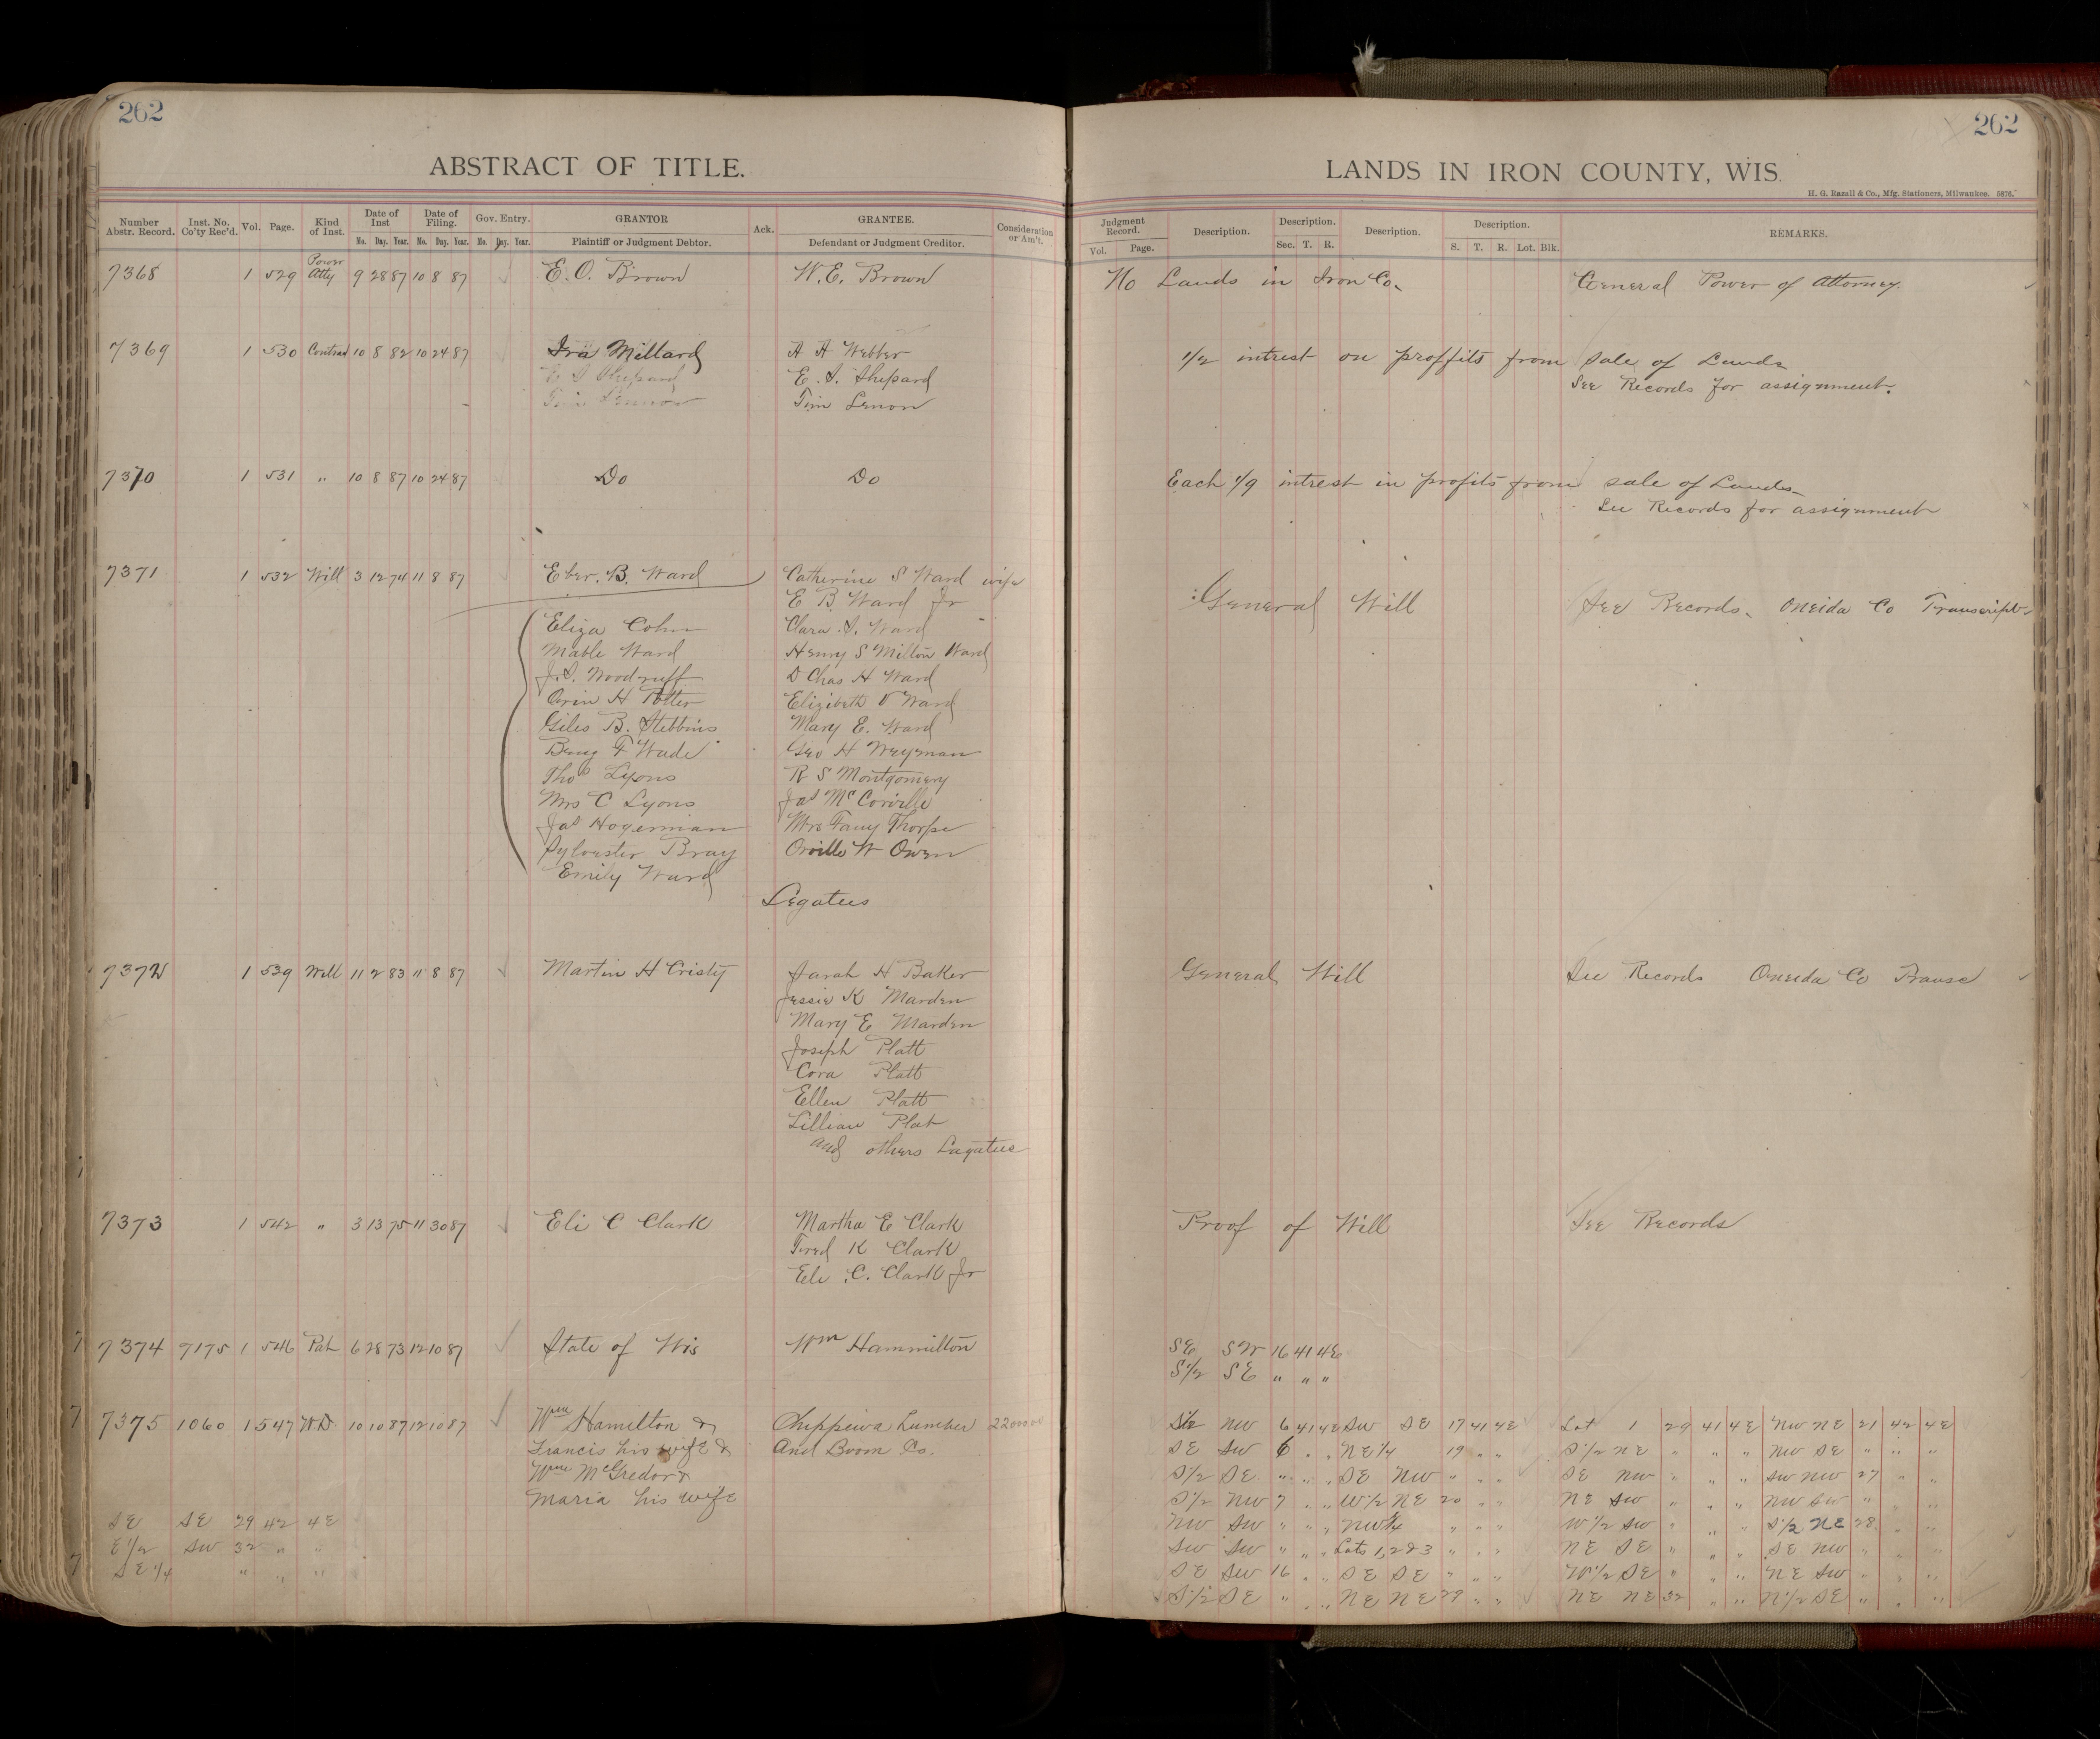 262
262
ABSTRACT OF TITLE.
LANDS IN IRON COUNTY, WIS.
H. G. Razall & Co., Mfg. Stationers, Milwaukee. 5876.
Number Abstr. Record. Inst. No. Co'ty Rec'd. Vol. Page. Kind of Inst. Date of Inst Mo. Day. Year. Date of Filing. Mo. Day. Year. Gov. Entry. Mo. Day. Year. GRANTOR Plaintiff or Judgment Debtor. Ack. GRANTEE. Defendant or Judgment Creditor. Consideration or Am't.
Judgment Record. Vol. Page. Description. Description. Sec. T. R. Description. Description. S. T. R. Lot. Blk. REMARKS.
7368 1 529 Power Atty 9 28 87 10 8 87 E. O. Brown W. E. Brown No Lands in Iron Co. General Power of Attorney.
7369 1 530 Contract 10 8 82 10 24 87 Ira Millard A A Webber 1/2 intrest on proffits from sale of Lands
E S Shepard E. S. Shepard See Records for assignment.
Tim Lennon Tim Lenon
7370 1 531 " 10 8 87 10 24 87 Do Do Each 1/9 intrest in profits from sale of Lands
See Records for assignment
7371 1 532 Will 3 12 74 11 8 87 Eber. B. Ward Catherine S Ward wife General Will See Records. Oneida Co Transcript
E B Ward Jr
Eliza Cohn Clara S. Ward
Mable Ward Henry S Milton Ward
J. S. Woodruff D Chas H Ward
Orin H Potter Elizibeth V Ward
Giles B. Stebbins Mary E. Ward
Benj F Wade Geo H Weyman
Thos Lyons R S Montgomery
Mrs C Lyons Jas McCorville
Jas Hogerman Mrs Fany Thorpe
Sylvester Bray Orville W Owen
Emily Ward
Legatees
7372 1 539 Will 11 2 83 11 8 87 Martin H Cristy Sarah H Baker General Will See Records Oneida Co Transc
Jessie K Marden
Mary E Marden
Joseph Platt
Cora Platt
Ellen Platt
Lillian Plat
and others Lagatee
7373 1 542 " 3 13 75 11 30 87 Eli C Clark Martha E Clark Proof of Will See Records
Fred K Clark
Eli C. Clark Jr
7374 7175 1 546 Pat 6 28 73 12 10 87 State of Wis Wm Hammilton SE SW 16 41 4E
S1/2 SE " " "
7375 1060 1 547 WD 10 10 87 12 10 87 Wm Hamilton & Chippewa Lumber 22000.00 S1/2 NW 6 41 4E SW SE 17 41 4E Lot 1 29 41 4E NW NE 21 42 4E
Francis his wife & And Boom Co. SE SW 6 " " NE1/4 19 " " S1/2 NE " " " NW SE " " "
Wm McGredor & S1/2 SE " " " SE NW " " " SE NW " " " SW NW 27 " "
Maria his wife S1/2 NW 7 " " W1/2 NE 20 " " NE SW " " " NW SW " " "
SE SE 29 42 4E NW SW " " " NW1/4 " " " W1/2 SW " " " S1/2 NE 28 " "
E1/2 SW 32 " " SW SW " " " Lots 1,2&3 " " " NE SE " " " SE NW " " "
SE1/4 " " " SE SW 16 " " SE SE " " " W1/2 SE " " " NE SW " " "
S1/2 SE " " " NE NE 29 " " NE NE 32 " " N1/2 SE " " "